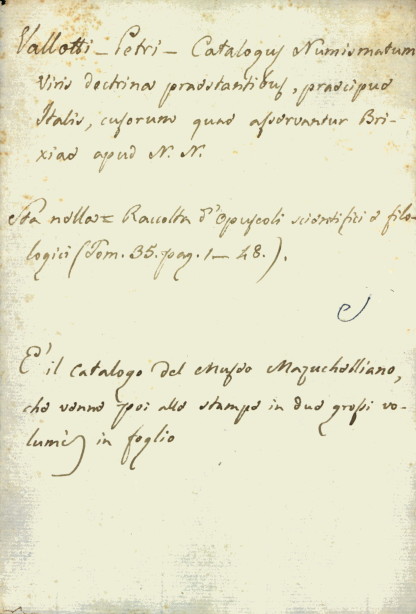 Vallotti - Petri - Catalogus Numismatum
Viris doctrina praestantibus, praecipue
Italis, cusorum quae asservantur Bri-
xiae apud N. N.
Sta nella = Raccolta d'Opuscoli scientifici e filo-
logici (Tom. 35. pag. 1 - 48.).
E' il catalogo del Museo Mazuchelliano,
che venne poi alle stampe in due grossi vo-
lumi in foglio